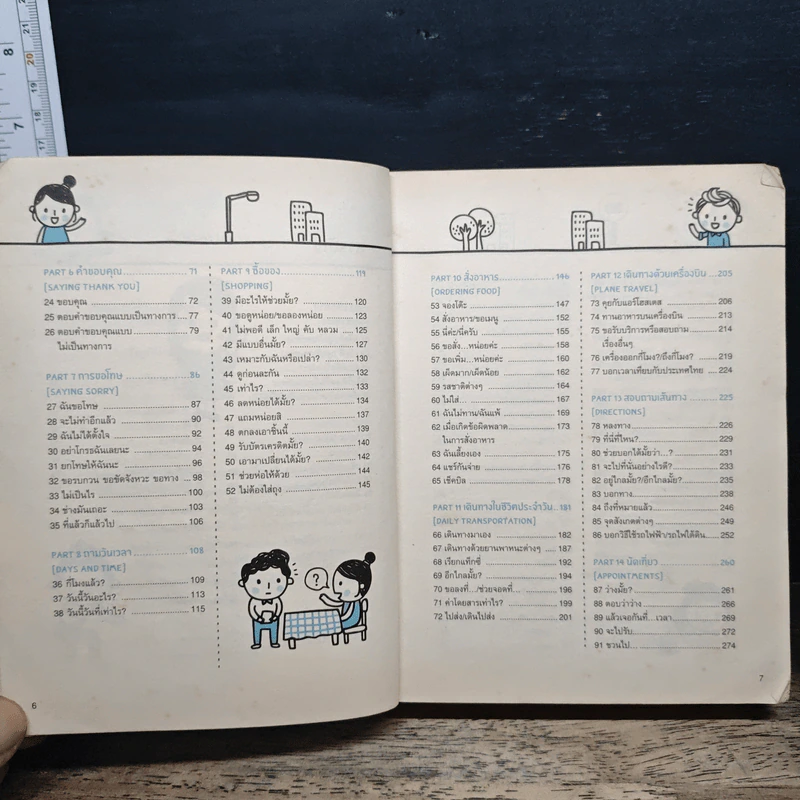 PART 6 คำขอบคุณ 71
[SAYING THANK YOU]
24 ขอบคุณ 72
25 ตอบคำขอบคุณแบบเป็นทางการ 77
26 ตอบคำขอบคุณแบบ 79
ไม่เป็นทางการ
PART 7 การขอโทษ 86
[SAYING SORRY]
27 ฉันขอโทษ 87
28 จะไม่ทำอีกแล้ว 90
29 ฉันไม่ได้ตั้งใจ 92
30 อย่าโกรธฉันเลยนะ 94
31 ยกโทษให้ฉันนะ 96
32 ขอรบกวน ขอขัดจังหวะ ขอทาง 98
33 ไม่เป็นไร 100
34 ช่างมันเถอะ 103
35 ที่แล้วก็แล้วไป 106
PART 8 ถามวันเวลา 108
[DAYS AND TIME]
36 กี่โมงแล้ว? 109
37 วันนี้วันอะไร? 113
38 วันนี้วันที่เท่าไร? 115
PART 9 ซื้อของ 119
[SHOPPING]
39 มีอะไรให้ช่วยมั้ย? 120
40 ขอดูหน่อย/ขอลองหน่อย 123
41 ไม่พอดี เล็ก ใหญ่ คับ หลวม 125
42 มีแบบอื่นมั้ย? 127
43 เหมาะกับฉันหรือเปล่า? 130
44 ดูก่อนละกัน 132
45 เท่าไร? 133
46 ลดหน่อยได้มั้ย? 134
47 แถมหน่อยสิ 137
48 ตกลงเอาชิ้นนี้ 139
49 รับบัตรเครดิตมั้ย? 140
50 เอามาเปลี่ยนได้มั้ย? 142
51 ช่วยห่อให้ด้วย 144
52 ไม่ต้องใส่ถุง 145
?
6
PART 10 สั่งอาหาร 146
[ORDERING FOOD]
53 จองโต๊ะ 147
54 สั่งอาหาร/ขอเมนู 152
55 นี่ค่ะ/นี่ครับ 155
56 ขอสั่ง...หน่อยค่ะ 158
57 ขอเพิ่ม...หน่อยค่ะ 160
58 เผ็ดมาก/เผ็ดน้อย 162
59 รสชาติต่างๆ 164
60 ไม่ใส่... 167
61 ฉันไม่ทาน/ฉันแพ้ 169
62 เมื่อเกิดข้อผิดพลาด 173
ในการสั่งอาหาร
63 ฉันเลี้ยงเอง 175
64 แชร์กันจ่าย 176
65 เช็คบิล 178
PART 11 เดินทางในชีวิตประจำวัน 181
[DAILY TRANSPORTATION]
66 เดินทางมาเอง 182
67 เดินทางด้วยยานพาหนะต่างๆ 187
68 เรียกแท็กซี่ 192
69 อีกไกลมั้ย? 194
70 ขอลงที่.../ช่วยจอดที่... 196
71 ค่าโดยสารเท่าไร? 199
72 ไปส่ง/เดินไปส่ง 201
PART 12 เดินทางด้วยเครื่องบิน 205
[PLANE TRAVEL]
73 คุยกับแอร์โฮสเตส 208
74 ทานอาหารบนเครื่องบิน 213
75 ขอรับบริการหรือสอบถาม 214
เรื่องอื่นๆ
76 เครื่องออกกี่โมง?/ถึงกี่โมง? 219
77 บอกเวลาเทียบกับประเทศไทย 224
PART 13 สอบถามเส้นทาง 225
[DIRECTIONS]
78 หลงทาง 226
79 ที่นี่ที่ไหน? 229
80 ช่วยบอกได้มั้ยว่า...? 231
81 จะไปที่นั่นอย่างไรดี? 233
82 อยู่ไกลมั้ย?/อีกไกลมั้ย? 235
83 บอกทาง 238
84 ถึงที่หมายแล้ว 246
85 จุดสังเกตต่างๆ 249
86 บอกวิธีใช้รถไฟฟ้า/รถไฟใต้ดิน 252
PART 14 นัดเที่ยว 260
[APPOINTMENTS]
87 ว่างมั้ย? 261
88 ตอบว่าว่าง 266
89 แล้วเจอกันที่...เวลา 269
90 จะไปรับ 272
91 ชวนไป... 274
7